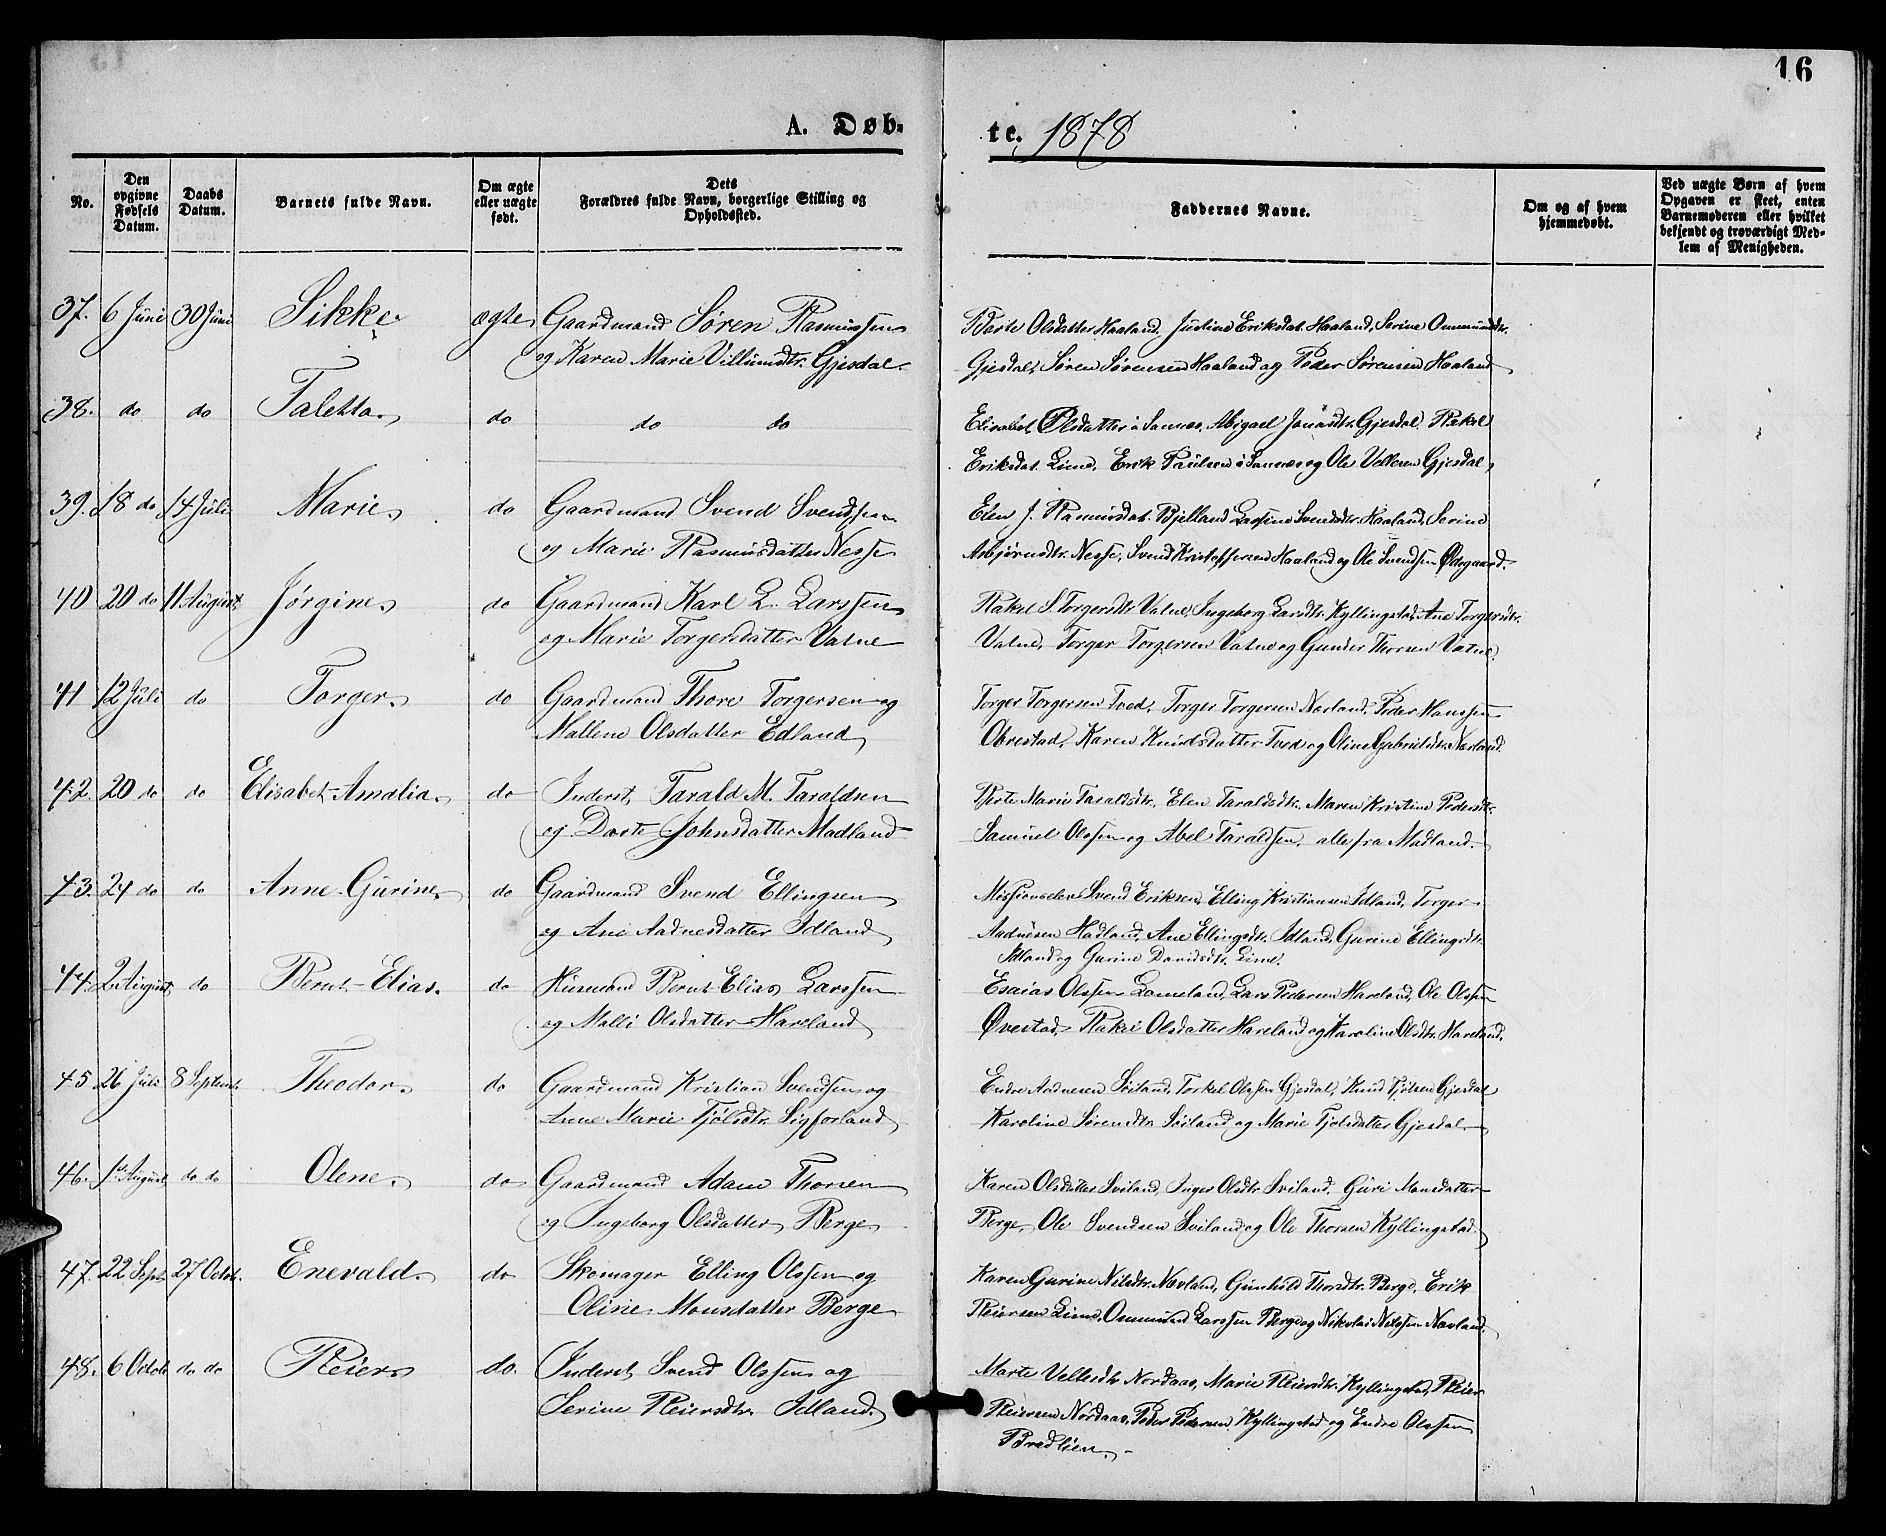 16
A. Døb-
te. 1878
No.
Den opgivne Fødsels Datum.
Daabs Datum.
Barnets fulde Navn.
Om ægte eller uægte født.
Dets Forældres fulde Navn, borgerlige Stilling og Opholdssted.
Faddernes Navne.
Om og af hvem hjemmedøbt.
Ved uægte Børn af hvem Opgaven er skeet, enten Barnemoderen eller hvilket bekjendt og troværdigt Medlem af Menigheden.
37. 6 Juni 30 Juni Sikke ægte Gaardmand Søren Rasmussen
og Karen Marie Villumdtr. Gjesdal.
Berte Olsdatter Haaland, Justine Eriksdat. Haaland, Serine Ommundsdtr.
Gjesdal, Søren Sørensen Haaland og Peder Sørensen Haaland
38. do do Taletta. do do do
Elisabet Olsdatter i Sannæs, Abigael Jonasdtr. Gjesdal, Rakel
Eriksdat. Lime, Erik Paulsen i Sannæs og Ole Vellesen Gjesdal,
39. 18 do 14 Juli Marie. do Gaardmand Svend Svendsen
og Marie Rasmusdatter Nesse
Elen J. Rasmusdat. Bjelland, Larsine Svendsdtr. Haaland, Serine
Asbjørnsdtr. Nesse, Svend Kristoffersen Haaland og Ole Svendsen Ødegaard.
40 20 do 11 August Jørgine. do Gaardmand Karl L. Larssen
og Marie Torgersdatter Vatne
Rakel S. Torgersdtr. Vatne, Ingeborg Larsdtr. Kyllingstad, Ane Torgersdtr.
Vatne, Torger Torgersen Vatne og Gunder Thorsen Vatne.
41 12 Juli do Torger. do Gaardmand Thore Torgersen og
Mallene Olsdatter Edland,
Torger Torgersen Tved, Torger Torgersen Nævland, Peder Hanssen
Obrestad, Karen Knudsdatter Tved og Oline Gabrielsdtr. Nærland.
42. 20 do do Elisabet Amalia. do Inderst Tarald M. Taraldsen
og Dorte Johnsdatter Madland
Berte Marie Taraldsdtr., Elen Taraldsdtr., Maren Kristine Pedersdtr.
Samuel Olssen og Abel Taraldsen, alle fra Madland.
43. 24 do do Anne Gurine. do Gaardmand Svend Ellingsen
og Ane Aadnesdatter Idland,
Missionselev Svend Eriksen, Elling Kristiansen Idland, Torger
Aadnesen Hadland, Ane Ellingsdtr. Idland, Gurine Ellingsdtr.
Idland og Gurine Davidsdtr. Lime.
44. 2 August do Bernt Elias. do Husmand Bernt Elias Larssen
og Malli Olsdatter Haveland,
Esaias Olssen Lomeland, Lars Pedersen Haveland, Ole Olssen
Øvestad, Rakel Olsdatter Haveland og Karoline Olsdtr. Haveland.
45 26 Juli 8 Septemb. Theodor. do Gaardmand Kristian Svendsen og
Anne Marie Tjølsdtr. Sigforland,
Endre Aadnesen Soiland, Torkel Olssen Gjesdal, Knud Tjølsen Gjesdal
Karoline Sørensdtr. Soiland og Marie Tjølsdatter Gjesdal.
46. 1 August do do Olene. do Gaardmand Adam Thorsen
og Ingeborg Olsdatter Berge.
Karen Olsdatter Sviland, Inger Olsdtr. Sviland, Guri Monsdatter
Berge, Ole Svendsen Sviland og Ole Thorsen Kyllingstad.
47. 22 Sept. 27 Octob. Enevald. do Skomager Elling Olssen og
Oline Monsdatter Berge
Karen Gurine Nilsdtr. Nævland, Gunhild Thorsdtr. Berge, Erik
Reiersen Lime, Ommund Larssen Berge og Nikolai Nilssen Nævland,
48. 6 Octob do do Reier. do. Inderst Svend Olssen og
Serine Reiersdtr. Idland.
Marte Vellesdtr. Nordaas, Marie Reiersdtr. Kyllingstad, Reier
Reiersen Nordaas, Peder Pedersen Kyllingstad og Endre Olssen
Bredlien.